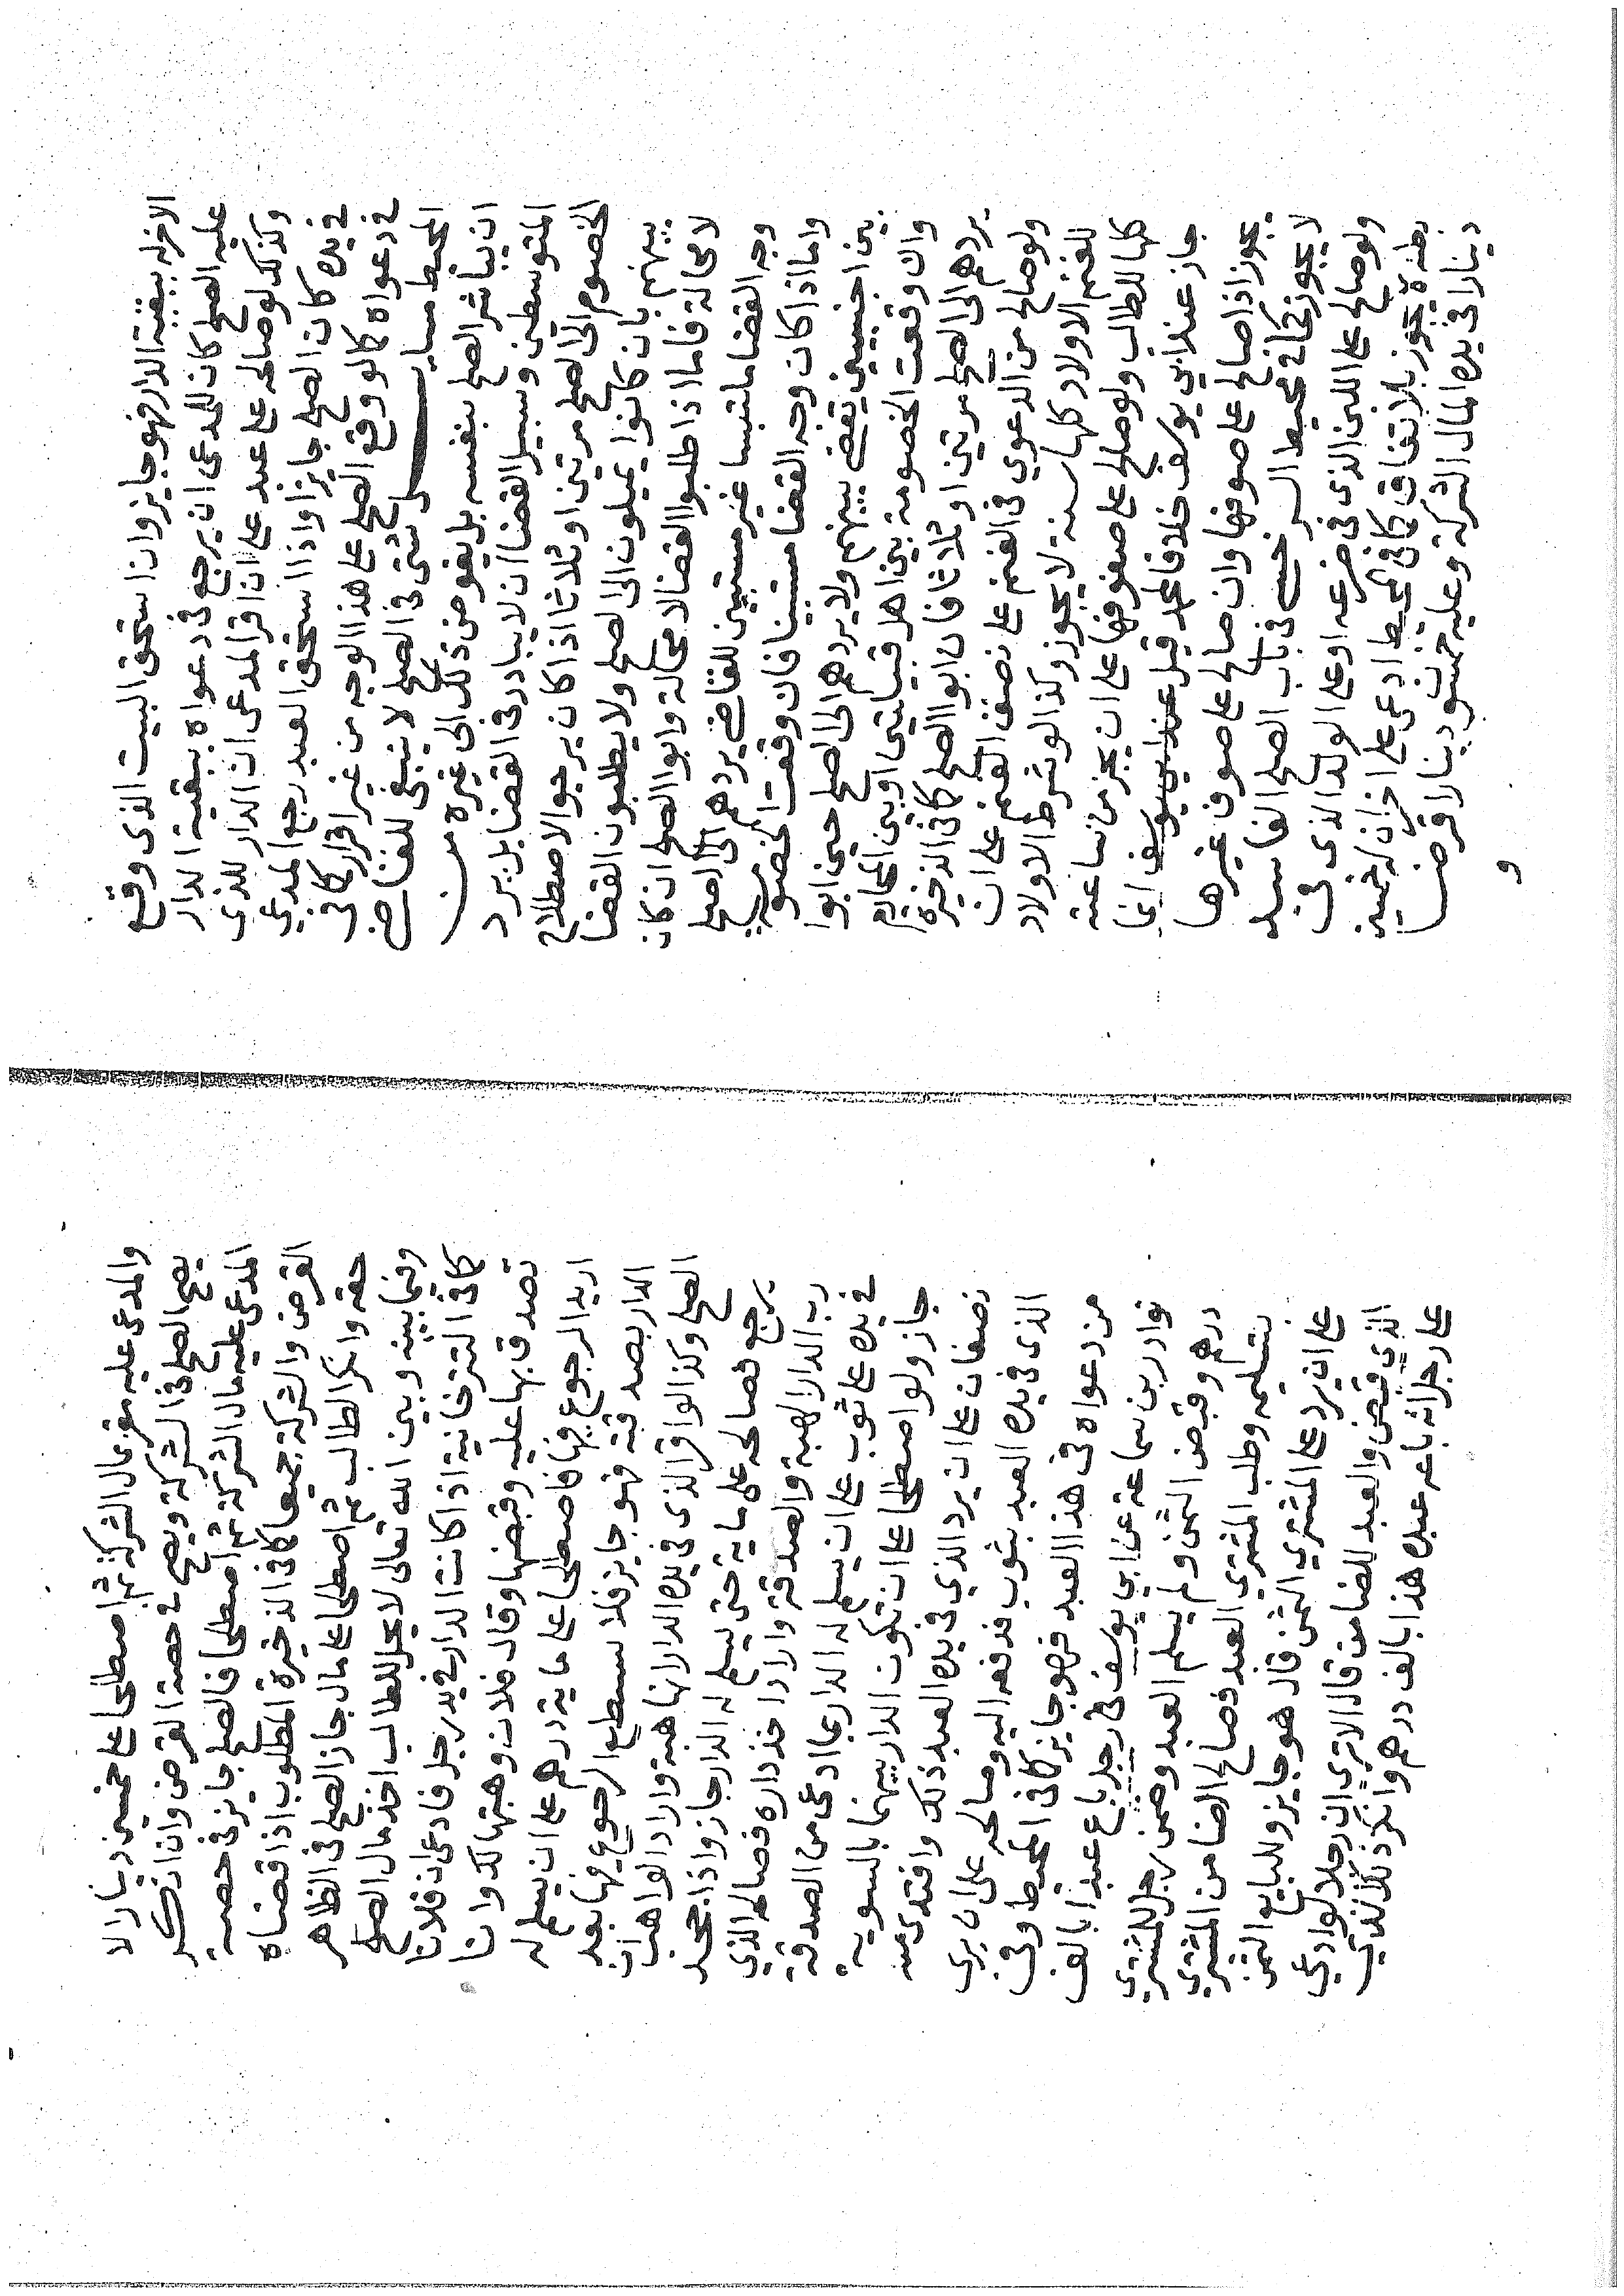 الاخر له ببقية الدار فهو جايز وان استحق البيت الذى وقع
عليه الصلح كان للمدعى ان يرجع فى دعواه ببقية الدار
وكذلك لو صالحه على عبد على ان اقر المدعى ان الدار للذى
فى يده كان الصلح جايزا واذا استحق العبد رجع المدعي
فى دعواه كما لو وقع الصلح على هذا الوجه من غير اقرار كما فى
المحيط مسايل شتى فى الصلح لا ينبغى للقاضى
ان يباشر الصلح بنفسه بل يفوض ذلك الى غيره من
المتوسطين وسبيل القضا ان لا يبادر فى القضا بل يرد
الخصوم الى الصلح مرتين او ثلاثا اذا كان يرجوا الاصطلاح
بينهم بان كانوا يميلون الى الصلح ولا يطلبون القضا
لا محالة فاما اذا طلبوا القضا لا محالة وابوا الصلح ان كان
وجه القضا ملتبسا غير مستبين للقاضى يردهم الى الصلح
واما اذا كان وجه القضا مستبينا فان وقعت الخصومة
بين اجنبيين يقضى بينهم ولا يردهم الى الصلح حين ابوا
وان وقعت الخصومة بين اهل قبيلتين او بين المحارم
يردهم الى الصلح مرتين او ثلاثا فان ابوا الصلح كما فى الذخيرة
ولو صالح من الدعوي فى الغنم على نصف الغنم على ان
للغنم الاولاد كلها سنة لا يجوز وكذا لو شرط الاولاد
كلها للطالب ولو صالح على صفوفها على ان يجز من ساعته
جاز عند ابي يوسف خلافا لمحمد قيل عند ابى يوسف انما
يجوز اذا صالح على صوفها وان صالح على صوف غيرها
لا يجوز كما فى محيط السرخسى فى باب الصلح الفاسد
ولو صالح على اللبن الذى فى ضرعه او على الولد الذى فى
بطنه لا يجوز بالاتفاق كما فى المحيط ادعى على اخر ان له خمسين
دينارا فى يده المال الشركة وعليه خمسون دينارا قرضا
و
والمدعى عليه مقر بمال الشركة ثم اصطلحا على خمسين دينارا لا
يصح الصلح فى الشركة ويصح فى حصة القرض وان انكر
المدعى عليه مال الشركة ثم اصطلحا فالصلح جايز فى حصة
القرض والشركة جميعا كما فى الذخيرة المطلوب اذا قضاه
حقه وانكر الطالب ثم اصطلحا على مال جاز الصلح فى الظاهر
وفيما بينه وبين الله تعالى لا يحل للطالب اخذ مال الصلح
كما فى التترخانية اذا كانت الدار فى يد رجل فادعى ان فلانا
تصدق بها عليه وقبضها وقال فلان وهبتها لك وانا
اريد الرجوع فيها فاصطلحا على ماية درهم على ان يسلم له
الدار بصدقة فهو جايز فلا يستطيع الرجوع فيها بعد
الصلح وكذا لو اقر الذى فى يده الدار انها هبة واراد الواهب ان
يرجع فصالحه على ماية حتى يسلم له الدار جاز واذا جحد
رب الدار الهبة والصدقة واراد اخذ داره فصالحه الذي
فى يده على ثوب على ان يسلم له الدار بما ادعى من الصدقة
جاز ولو اصطلحا على ان تكون الدار بينهما بالسوية
نصفان على ان يرد الذي فى يده العبد ذلك وافتدى منه
الذى فى يده العبد بثوب فدفعه اليه وصالحه على ان برى
من دعواه فى هذا العبد فهو جايز كما فى المحيط وفى
نوادر بن سماعة عن ابي يوسف فى رجل باع عبدا بالف
درهم وقبض الثمن ولم يسلم العبد وضمن رجل للمشترى
تسليمه وطلب المشتري العبد فصالح الضامن المشترى
على ان يرد على المشترى الثمن قال هو جايز وللبايع الثمن
الذي قبض والعبد للضامن قال الا ترى ان رجلا لو ادعى
على رجل انه باعه عبده هذا بالف درهم وانكر ذلك الذى